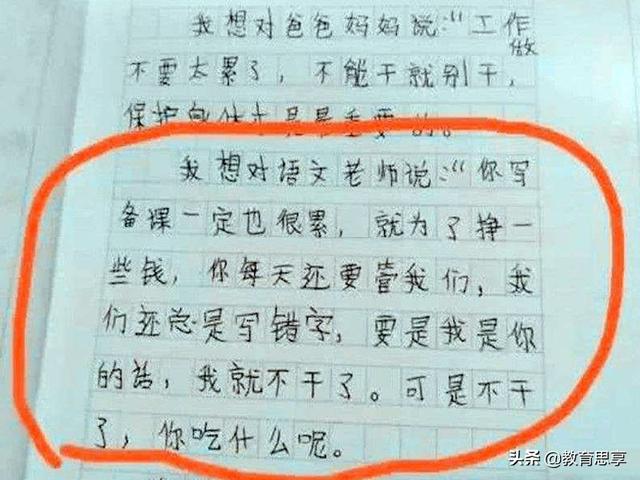 我想对爸爸妈妈说:“工作
做
不要太累了，不能干就别干，
保护身体才是最重要的。
我想对语文老师说:“你写
备课一定也很累，就为了挣一
些钱，你每天还要管我们，我
们还总是写错字，要是我是你
的话，我就不干了。可是不干
了，你吃什么呢。
头条 @教育思享